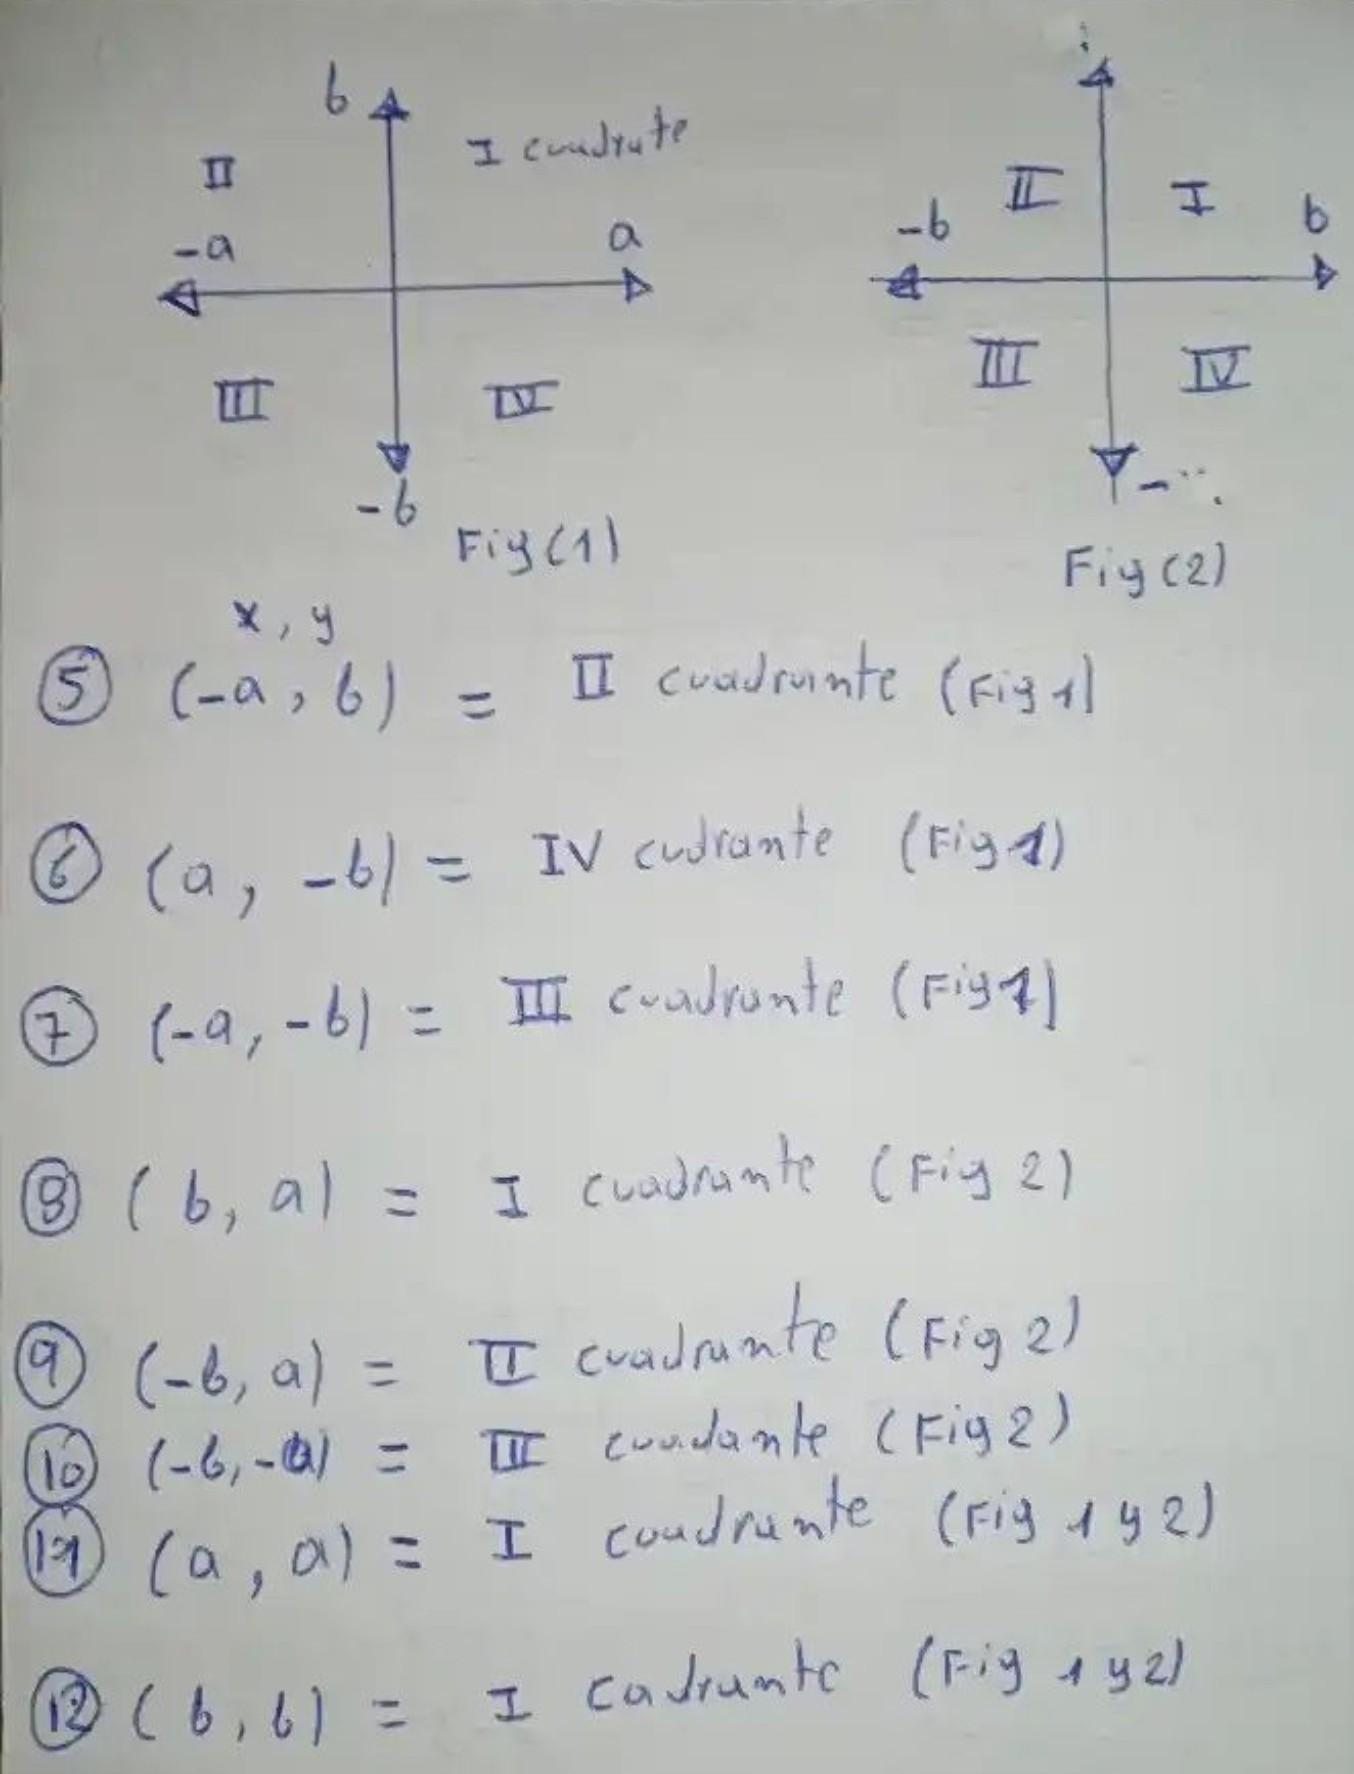 b
I cuadrate
II
-a
a
III
IV
-b
Fig(1)
II
I
-b
b
III
IV
Fig(2)
x, y
5 (-a, b) = II cuadrante (Fig 1)
6 (a, -b) = IV cudrante (Fig 1)
7 (-a, -b) = III cuadrante (Fig 1)
8 (b, a) = I cuadrante (Fig 2)
9 (-b, a) = II cuadrante (Fig 2)
10 (-b, -a) = III cuadante (Fig 2)
11 (a, a) = I cuadrante (Fig 1 y 2)
12 (b, b) = I cadrante (Fig 1 y 2)